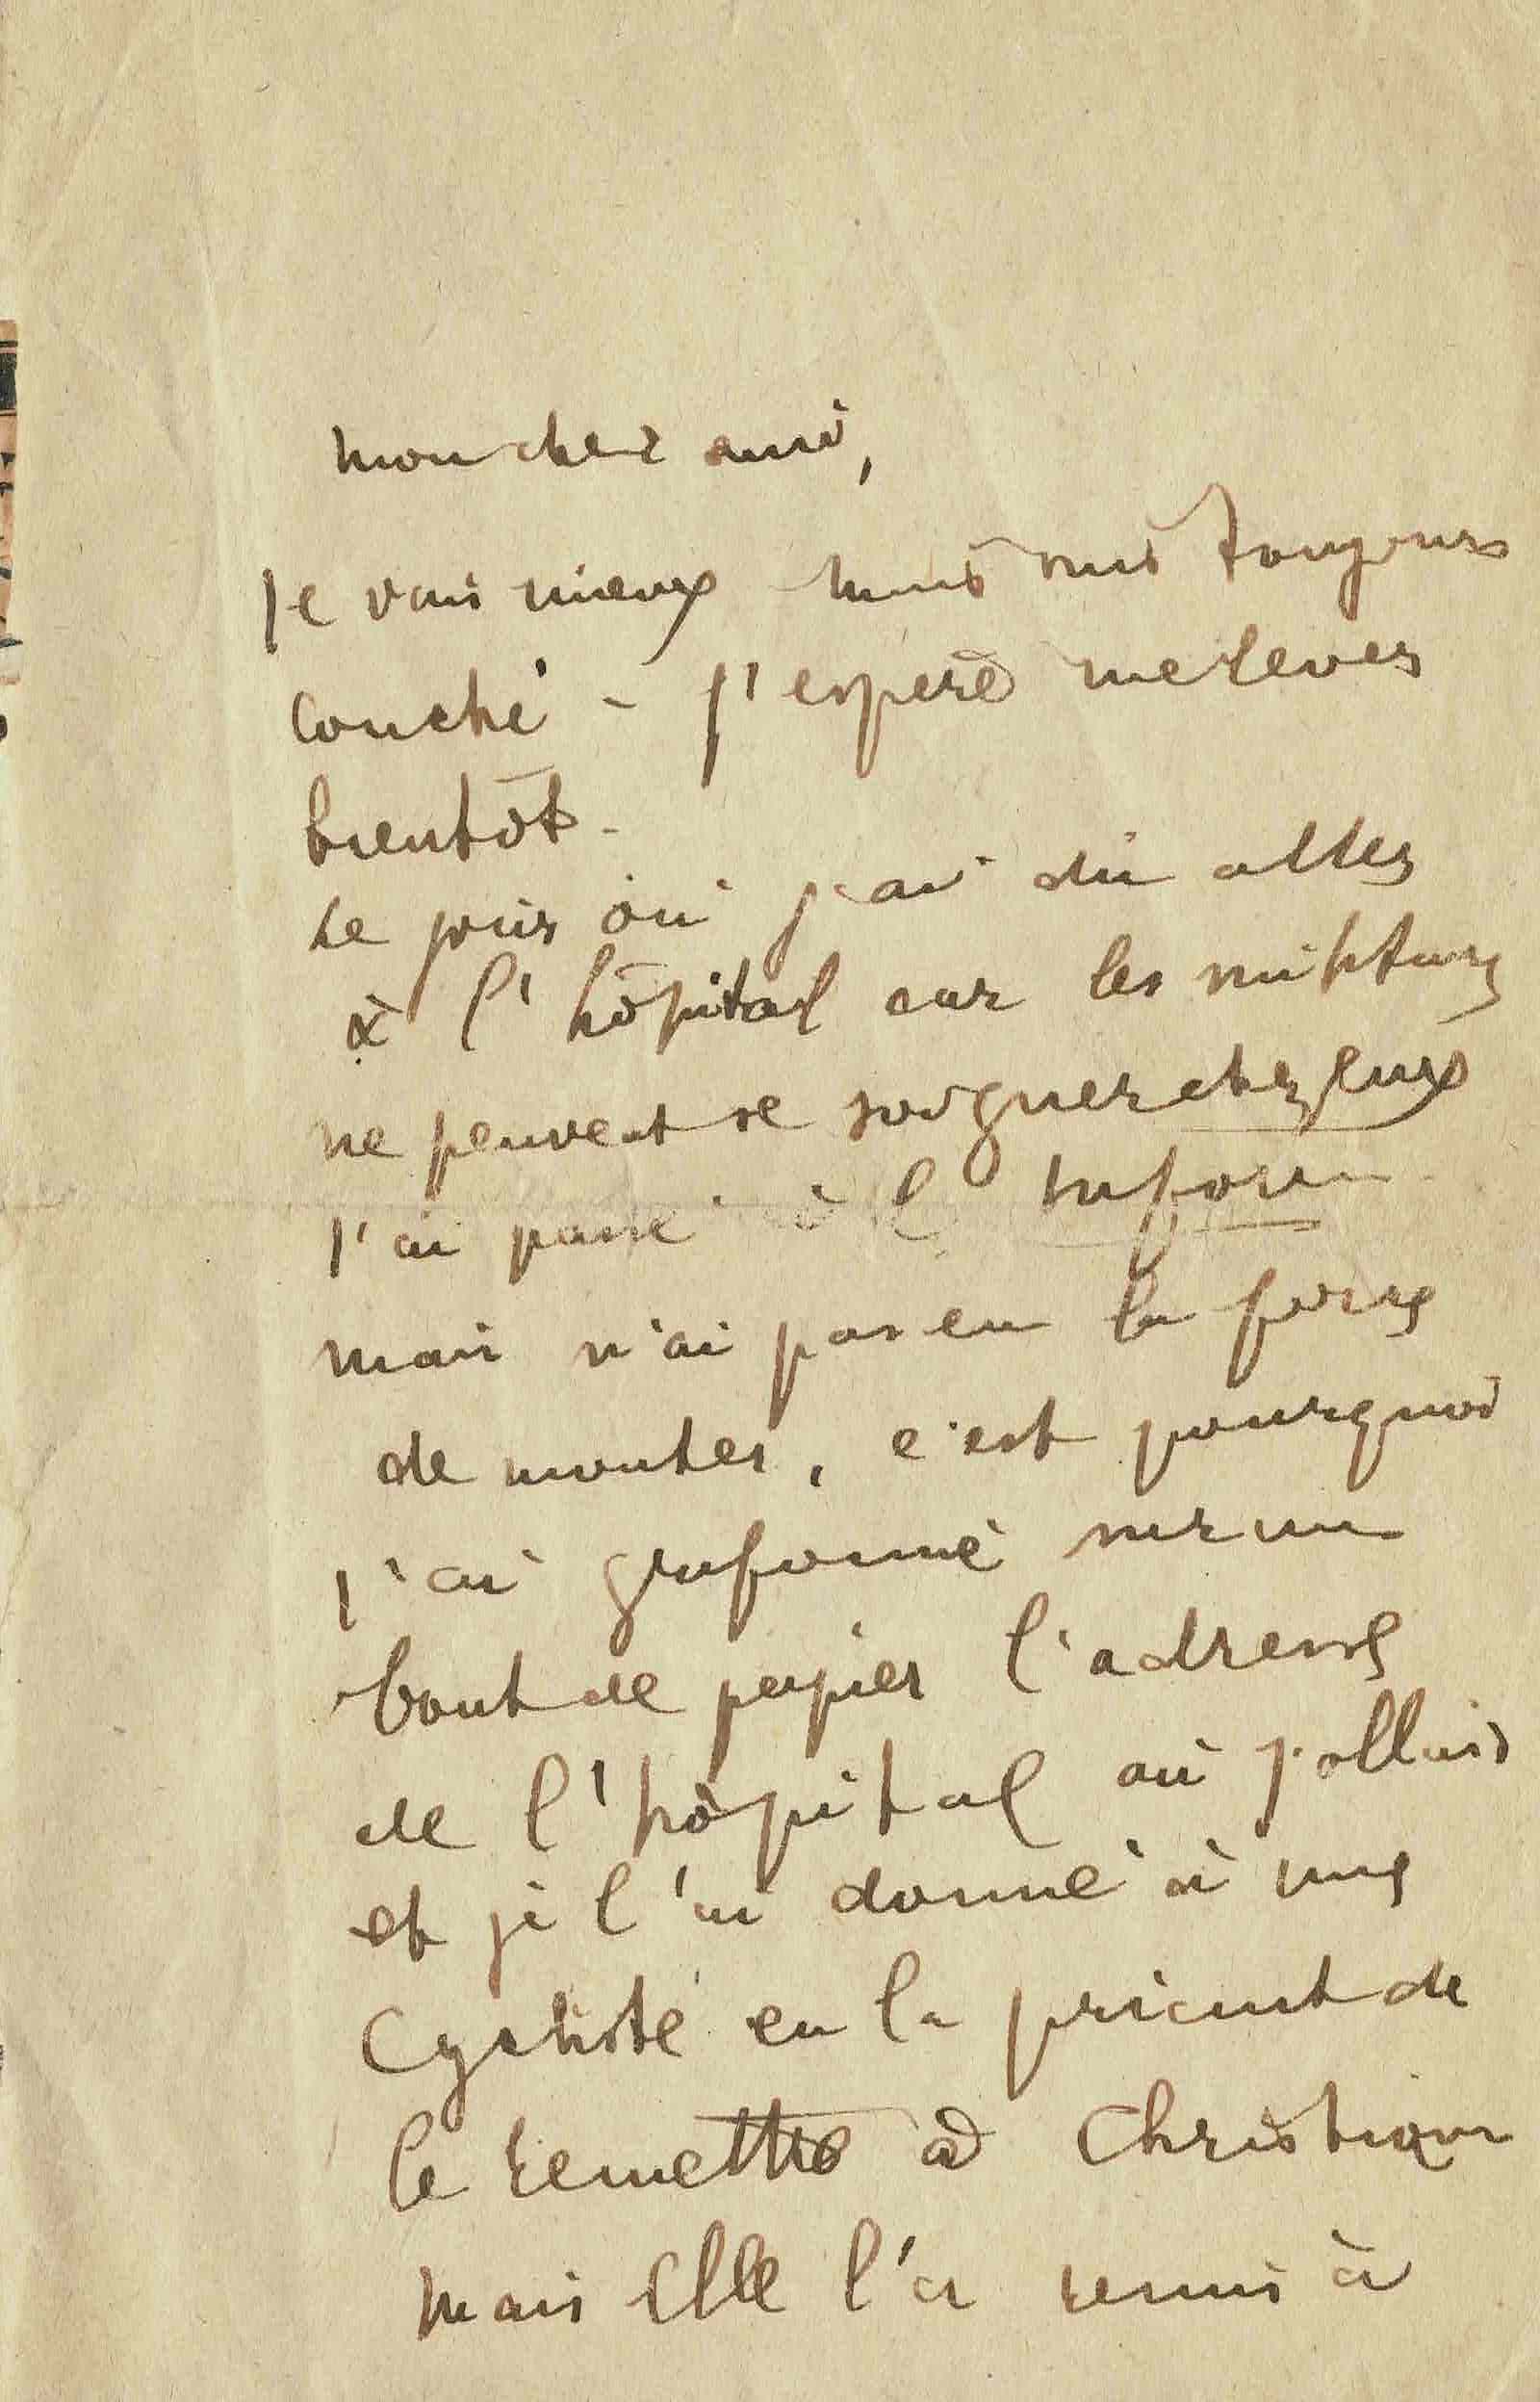 mon cher ami,
Je vais mieux mais suis toujours
couché - J'espère me lever
bientôt -
Le jour où j'ai dû aller
à l'hôpital car les militaires
ne peuvent se soigner chez eux
J'ai passé à
mais n'ai pas eu la force
de monter, c'est pourquoi
J'ai grifonné sur un
bout de papier l'adresse
de l'hôpital où j'allais
et je l'ai donné à une
Cycliste en la priant de
le remettre à Christian
mais elle l'a remis à